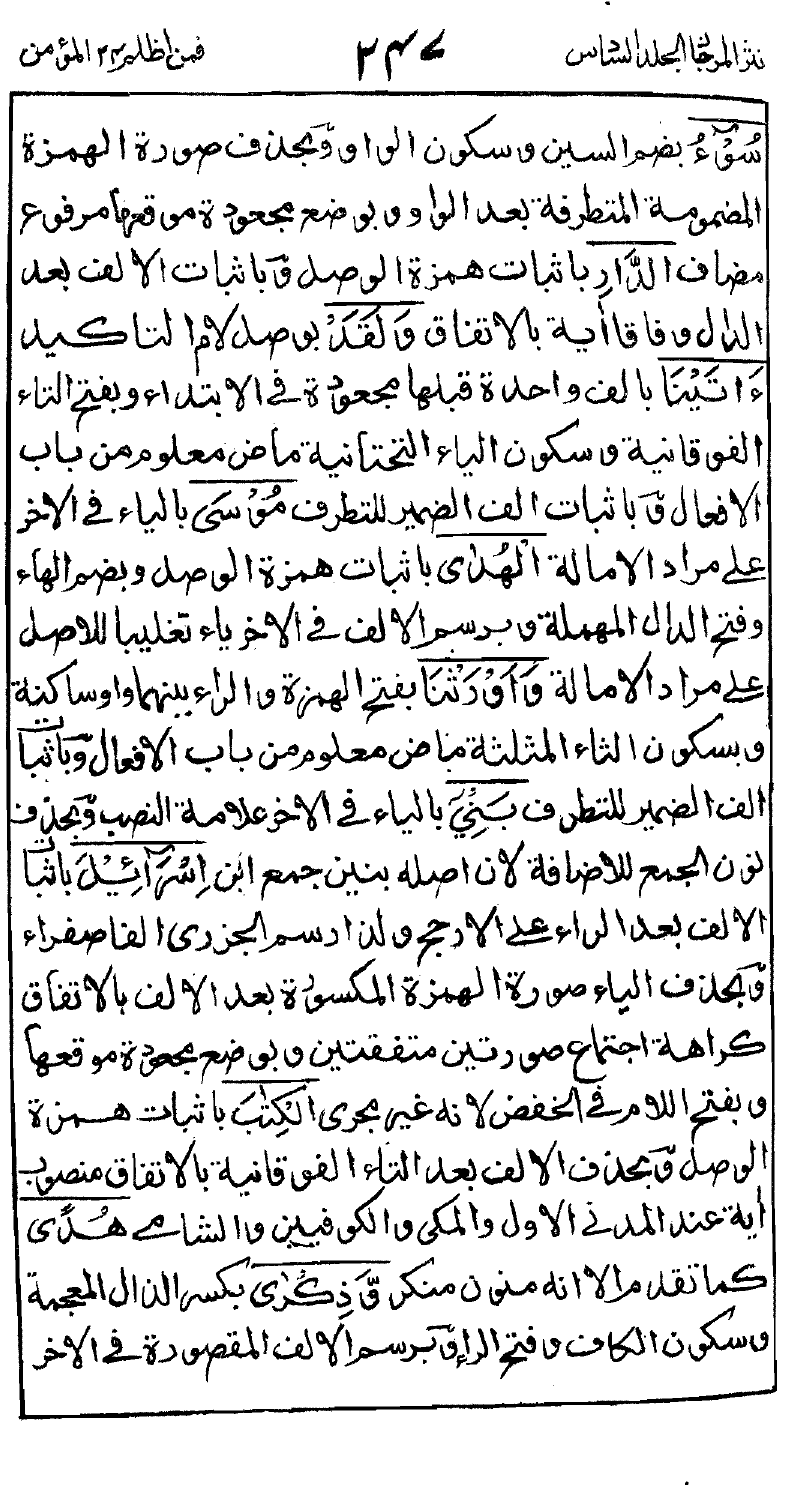 نثر المرجان المجلد السادس ٢٤٧ فمن اظلم ٢٤ المؤمن
سُوْٓءُ بضم السين وسكون الواو وبحذف صورة الهمزة
المضمومة المتطرفة بعد الواو وبوضع مجعودة موقعها مرفوع
مضاف الدَّارِ باثبات همزة الوصل وباثبات الالف بعد
الدال وفاقا أية بالاتفاق وَلَقَدْ بوصل لام التاكيد
ءَاتَيْنَا بالف واحدة قبلها مجعودة في الابتداء وبفتح التاء
الفوقانية وسكون الياء التحتانية ماض معلوم من باب
الافعال وباثبات الف الضمير للتطرف مُوْسَى بالياء في الاخر
على مراد الامالة الْهُدٰى باثبات همزة الوصل وبضم الهاء
وفتح الدال المهملة وبرسم الالف في الاخر ياء تغليبا للاصل
على مراد الامالة وَاَوْرَثْنَا بفتح الهمزة والراء بينهما واو ساكنة
وبسكون الثاء المثلثة ماض معلوم من باب الافعال وباثبات
الف الضمير للتطرف بَنِيْٓ بالياء في الاخر علامة النصب وبحذف
نون الجمع للاضافة لان اصله بنين جمع ابن اِسْرَآئِيْلَ باثبات
الالف بعد الراء على الارجح ولذا رسم الجزرى الفا صفراء
وبحذف الياء صورة الهمزة المكسورة بعد الالف بالاتفاق
كراهة اجتماع صورتين متفقتين وبوضع مجعودة موقعها
وبفتح اللام في الخفض لانه غير مجرى الْكِتٰبَ باثبات همزة
الوصل وبحذف الالف بعد التاء الفوقانية بالاتفاق منصوب
أية عند المدني الاول والمكي والكوفيين والشامي هُدًى
كما تقدم الا انه منون منكر وَّذِكْرٰى بكسر الذال المعجمة
وسكون الكاف وفتح الراء وبرسم الالف المقصورة في الاخر